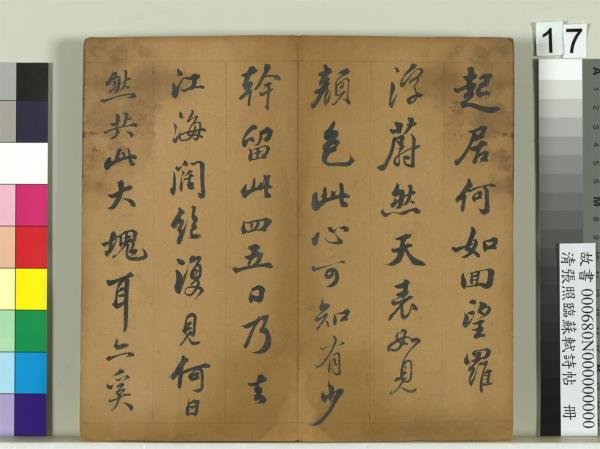 起居何如回望羅
浮蔚然天表如見
顏色此心可知有少
幹留此四五日乃去
江海闊絕復見何日
然共此大塊耳亦奚
17
故書 000680N000000000
清張照臨蘇軾詩帖 冊